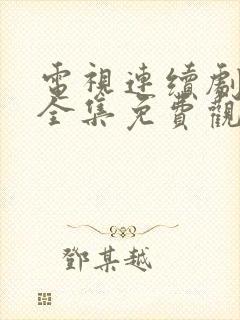 電視連續劇
全集免費觀
鄧某越